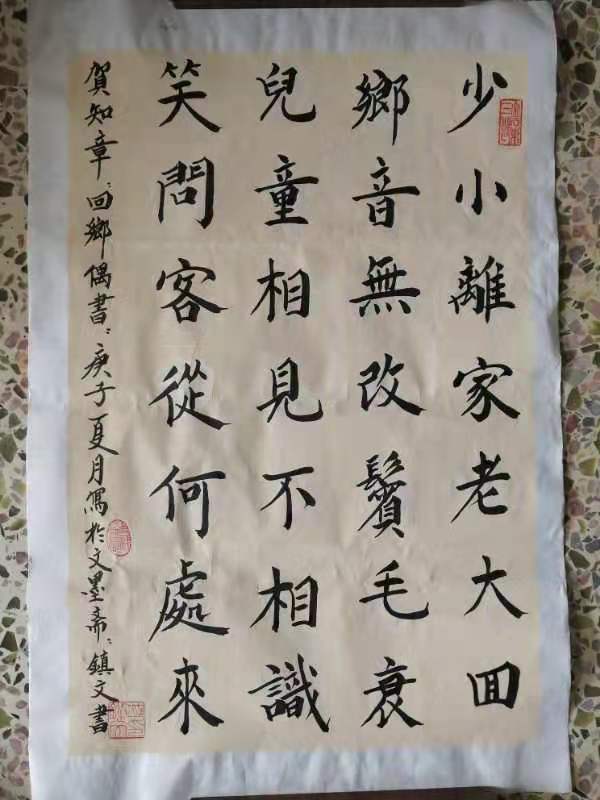 少小離家老大囬
鄉音無改鬢毛衰
兒童相見不相識
笑問客從何處來
賀知章、回鄉偶書、庚子夏月寫於文墨斋、鎮文書